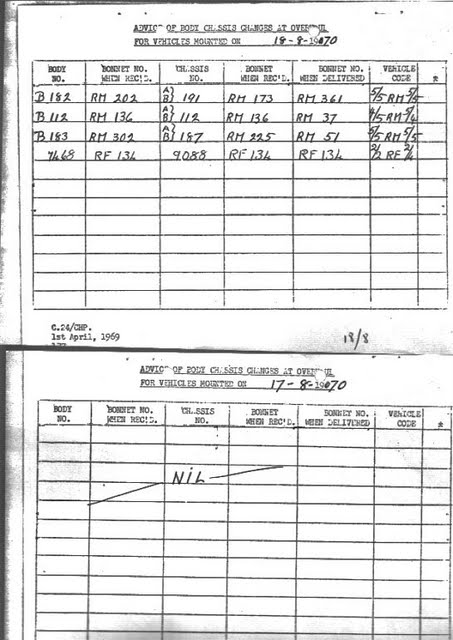 ADVICE OF BODY CHASSIS CHANGES AT OVERHAUL
FOR VEHICLES MOUNTED ON 18-8-1970
BODY NO. BONNET NO. WHEN REC'D. CHASSIS NO. BONNET WHEN REC'D. BONNET NO. WHEN DELIVERED VEHICLE CODE *
B 182 RM 202 A} B} 191 RM 173 RM 361 5/5 RM 5/5
B 112 RM 136 A} B} 112 RM 136 RM 37 4/5 RM 5/4
B 183 RM 302 A} B} 187 RM 225 RM 51 5/5 RM 5/5
7468 RF 134 9088 RF 134 RF 134 2/2 RF 2/4
C.24/CHP.
1st April, 1969
18/8
ADVICE OF BODY CHASSIS CHANGES AT OVERHAUL
FOR VEHICLES MOUNTED ON 17-8-1970
BODY NO. BONNET NO. WHEN REC'D. CHASSIS NO. BONNET WHEN REC'D. BONNET NO. WHEN DELIVERED VEHICLE CODE *
NIL